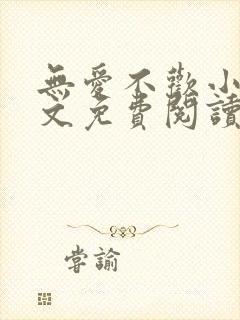 無愛不歡小
文免費閱讀
嘗諭